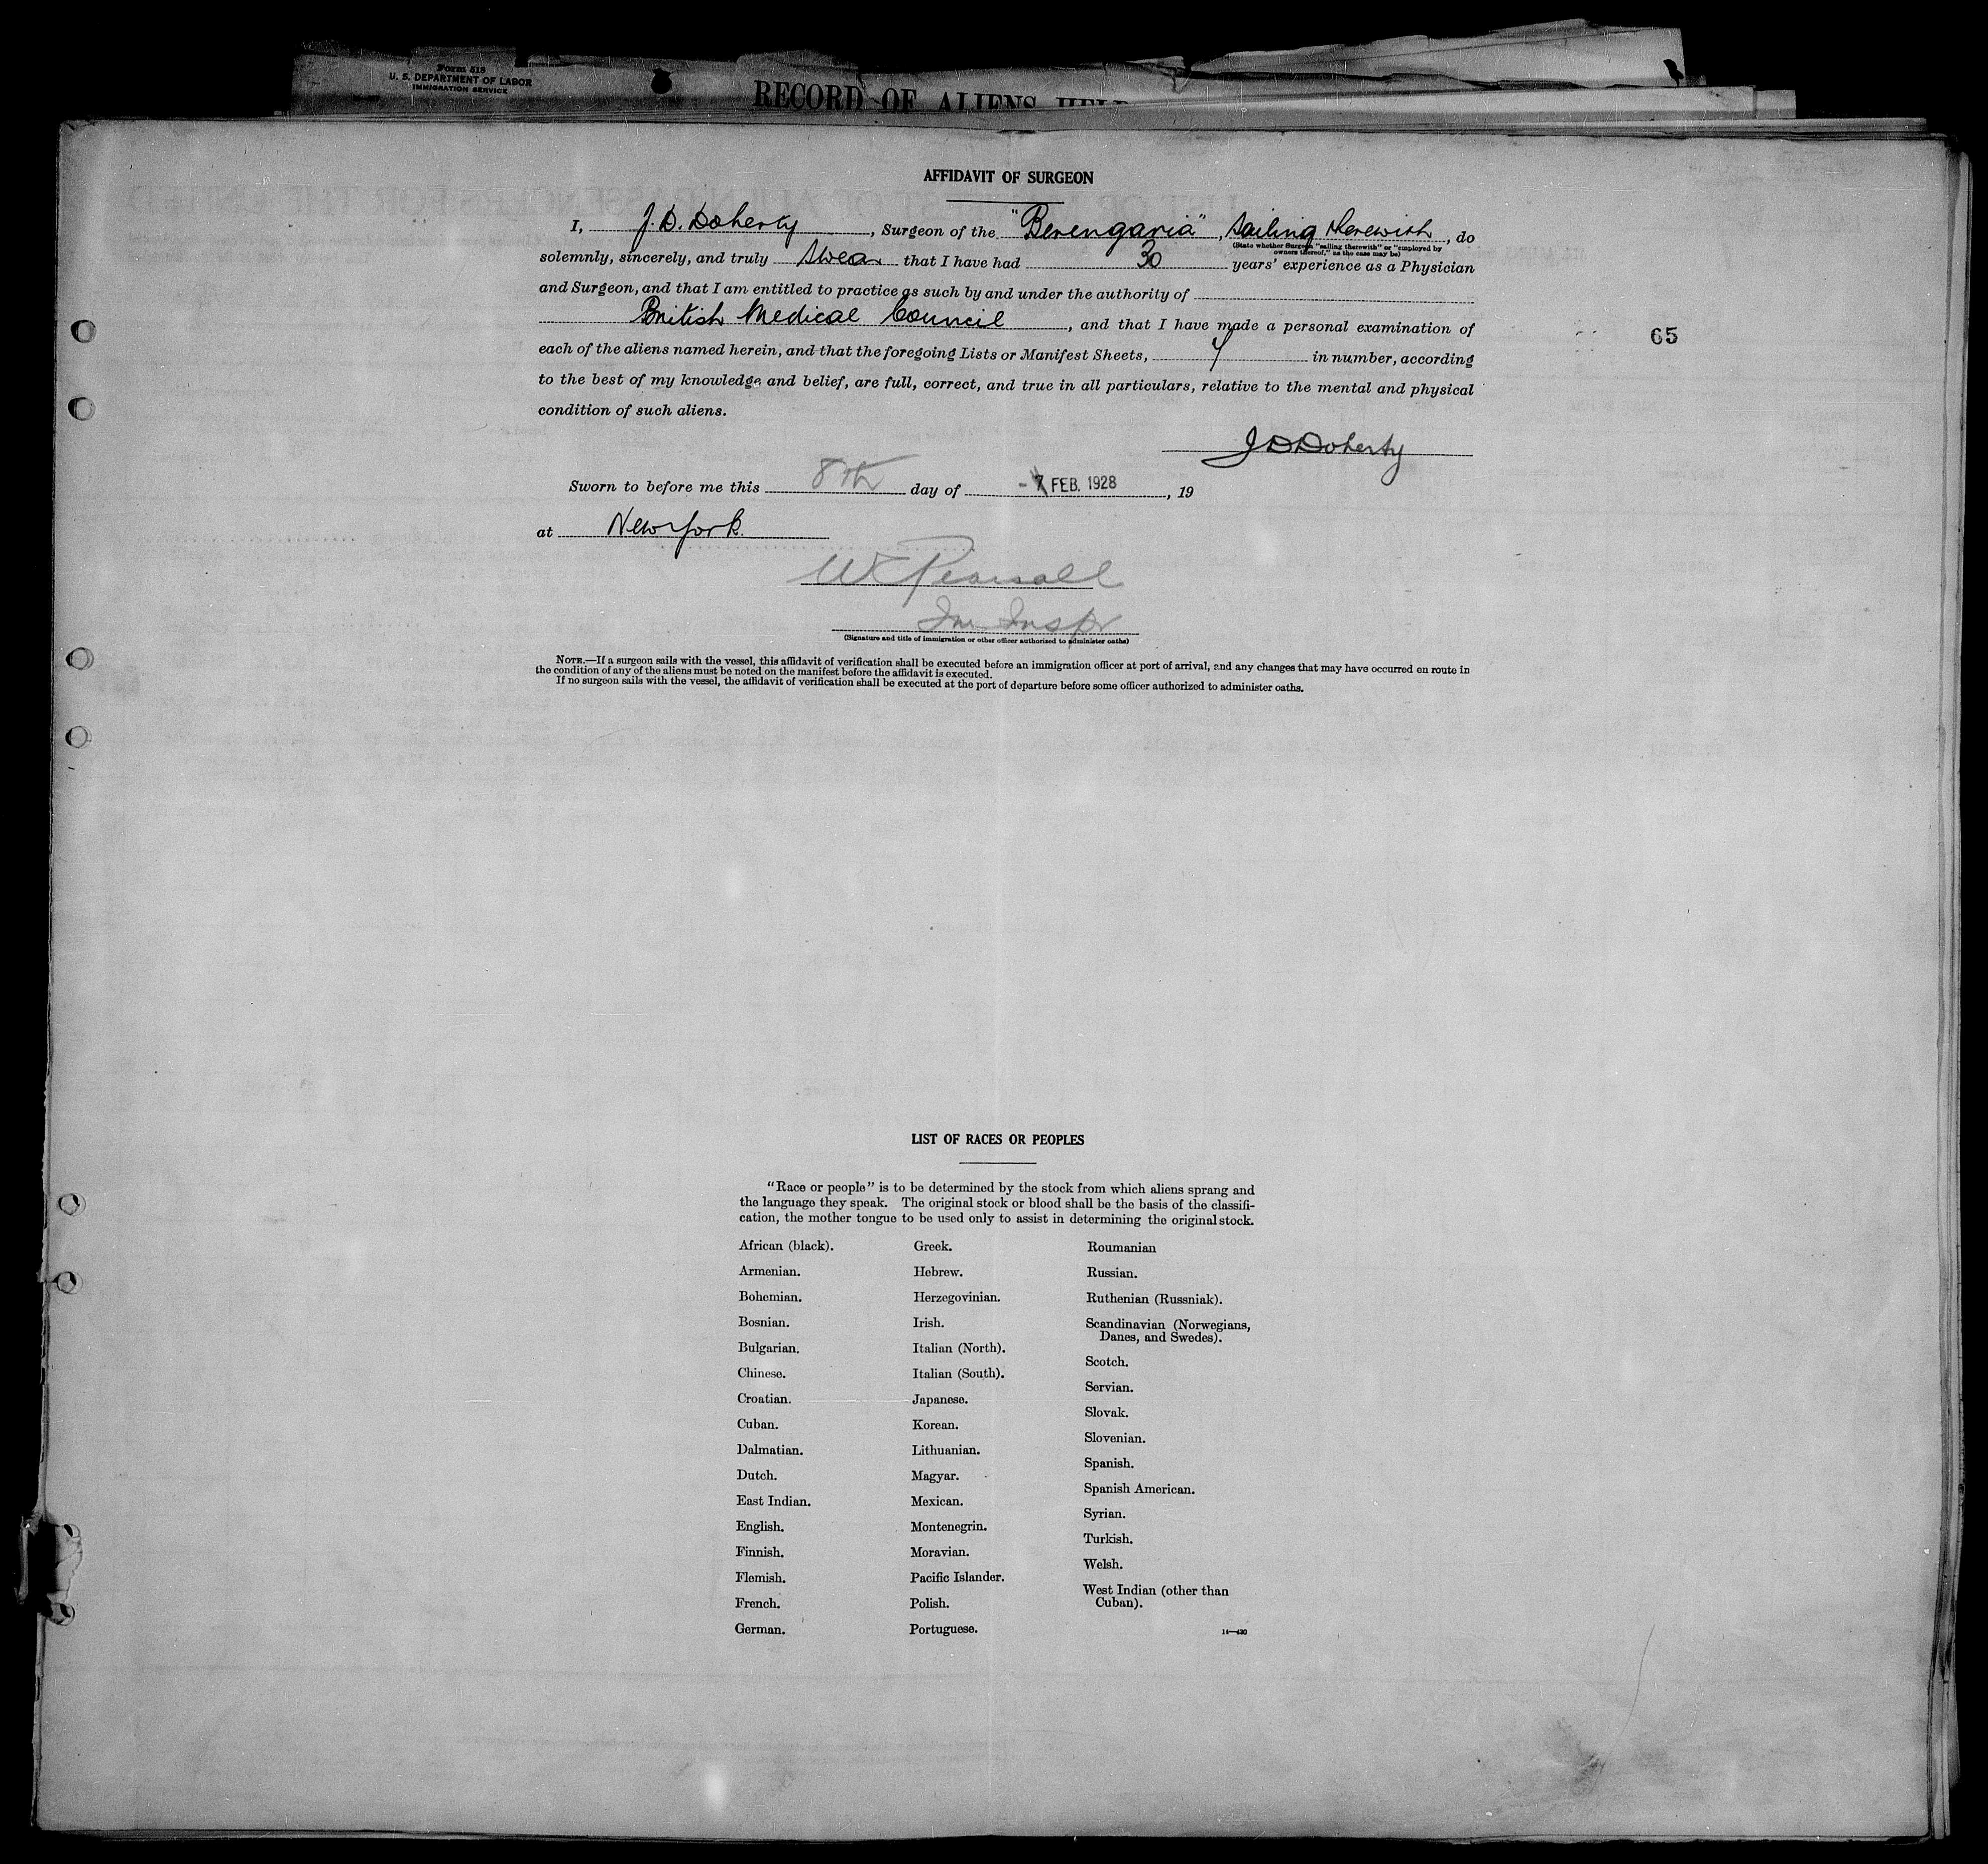 Form 518
U. S. DEPARTMENT OF LABOR
IMMIGRATION SERVICE
RECORD OF ALIENS HELD
AFFIDAVIT OF SURGEON
I, J. D. Doherty, Surgeon of the "Berengaria", sailing therewith, do
(State whether Surgeon "sailing therewith" or "employed by
owners thereof," as the case may be)
solemnly, sincerely, and truly swear that I have had 30 years' experience as a Physician
and Surgeon, and that I am entitled to practice as such by and under the authority of
British Medical Council, and that I have made a personal examination of
65
each of the aliens named herein, and that the foregoing Lists or Manifest Sheets, in number, according
to the best of my knowledge and belief, are full, correct, and true in all particulars, relative to the mental and physical
condition of such aliens.
J D Doherty
Sworn to before me this 8th day of -7 FEB. 1928, 19
at New York.
W Pearsall
Im Inspr
(Signature and title of immigration or other officer authorized to administer oaths)
NOTE.—If a surgeon sails with the vessel, this affidavit of verification shall be executed before an immigration officer at port of arrival, and any changes that may have occurred en route in
the condition of any of the aliens must be noted on the manifest before the affidavit is executed.
If no surgeon sails with the vessel, the affidavit of verification shall be executed at the port of departure before some officer authorized to administer oaths.
LIST OF RACES OR PEOPLES
"Race or people" is to be determined by the stock from which aliens sprang and
the language they speak. The original stock or blood shall be the basis of the classifi-
cation, the mother tongue to be used only to assist in determining the original stock.
African (black).
Armenian.
Bohemian.
Bosnian.
Bulgarian.
Chinese.
Croatian.
Cuban.
Dalmatian.
Dutch.
East Indian.
English.
Finnish.
Flemish.
French.
German.
Greek.
Hebrew.
Herzegovinian.
Irish.
Italian (North).
Italian (South).
Japanese.
Korean.
Lithuanian.
Magyar.
Mexican.
Montenegrin.
Moravian.
Pacific Islander.
Polish.
Portuguese.
Roumanian
Russian.
Ruthenian (Russniak).
Scandinavian (Norwegians,
Danes, and Swedes).
Scotch.
Servian.
Slovak.
Slovenian.
Spanish.
Spanish American.
Syrian.
Turkish.
Welsh.
West Indian (other than
Cuban).
14—430